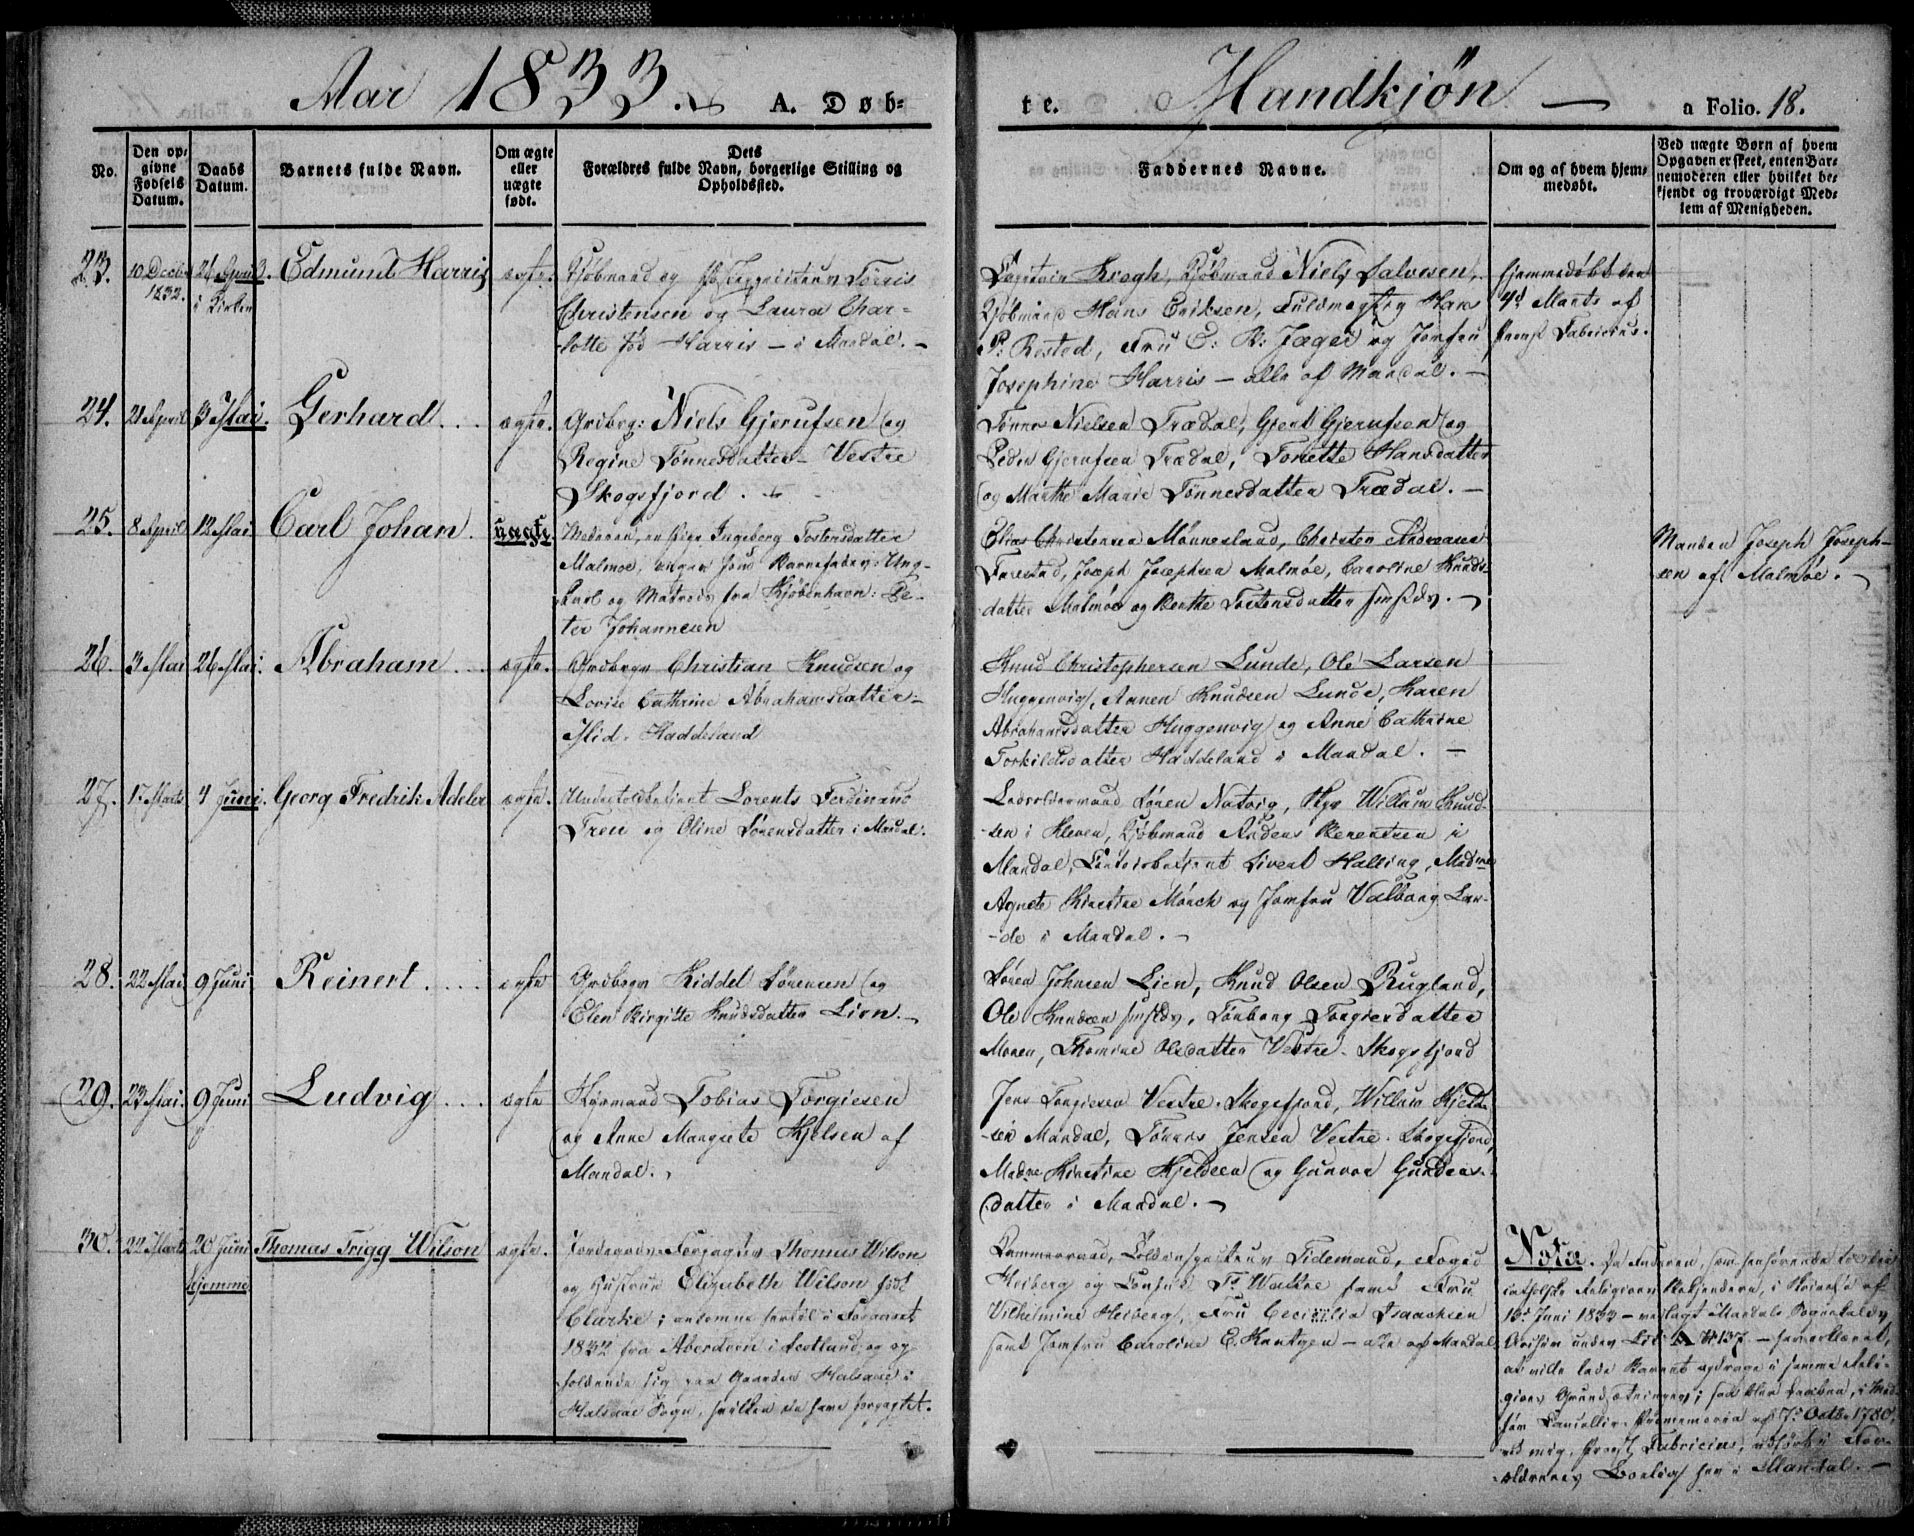 Aar 1833. A. Døb=
te. Mandkjøn — a Folio. 18.
No.
Den op=
givne
Fødsels
Datum.
Daabs
Datum.
Barnets fulde Navn.
Om ægte
eller
uægte
født.
Dets
Forældres fulde Navn, borgerlige Stilling og
Opholdssted.
Faddernes Navne.
Om og af hvem hjem=
medøbt.
Ved uægte Børn af hvem
Opgaven er skeet, enten Bar=
nemoderen eller hvilket be=
kjendt og troværdigt Med=
lem af Menigheden.
23. 10 Decbr 1832. 21 April. i Kirken Edmund Harris ægte.
Kjøbmand og Tørris
Christensen og Laura Char-
lotte fød Harris — i Mandal. —
Krogh, Kjøbmand Niels Salvesen,
Kjøbmand Hans Eriksen, Fuldmægtig Hans
P: Rosted, Fru C: Jæger og Jomfru
Josephine Harris — alle af Mandal. —
Hjemmedøbt den
4d Marts af
Provst Fabricius.
24. 21 April 3 Mai. Gerhard ... ægte.
Grdbrg: Niels Gjerufsen og
Regine Tønnesdatter - Vestre
Skogsfjord. —
Tønnes Nielsen Trædal, Gjert Gjerufsen og
Peder Gjerufsen Trædal, Tonette Hansdatter
og Marthe Marie Tønnesdatter Trædal. —
25. 8 April 12 Mai Carl Johan. uægte.
Moderen, en Pige Ingeborg Tostensdatter
Malmøe, angav som Barnefader: Ung-
karl og Matros fra Kjøbenhavn: Pe-
ter Johannesen
Elias Christensen Mønnesland, Christen Andreasen
Farestad, Joseph Josephsen Malmøe, Caroline Knuds-
datter Malmøe og Berthe Tostensdatter sammesteds. —
Manden Joseph Joseph-
sen af Malmøe. —
26. 3 Mai 26 Mai. Abraham ... ægte.
Grdbrgr Christian Knudsen og
Lovise Cathrine Abrahamsdatter -
Mid. Haddeland
Knud Christophersen Lunde, Ole Larsen
Huggenvig, Aanen Knudsen Lunde, Karen
Abrahamsdatter Huggenvig og Anne Cathrine
Torkildsdatter Haddeland i Mandal. —
27. 17 Marts 4 Juni. Georg Fredrik Adeler ægte.
Undertoldbetjent Lorents Ferdinand
Treu og Oline Sørensdatter i Mandal.
Lodsoldermand Søren Natvig, Willum Knud-
sen i Kleven, Kjøbmand Anders Berentsen i
Mandal, Toldbetjent Sivert Halling, Madme
Agnete Kirstine Mørch og Jomfru Valborg Lan-
de i Mandal. —
28. 22 Mai 9 Juni Reinert .... ægte
Grdbrgr Kiddel Sørensen og
Elen Birgitte Knudsdatter Lien. —
Søren Johnsen Lien, Knud Olsen Rugland,
Ole Knudsen sammesteds, Tønborg Torgiersdatter
Moren, Thomine Olsdatter Vestre-Skogsfjord
29. 23 Mai. 9 Juni Ludvig ... ægte
Styrmand Tobias Torgiesen
og Anne Margrete Kjelsen af
Mandal. ,
Jens Torgiesen Vestre-Skogsfjord, Willum Kjeld-
sen Mandal, Tønnes Jensen Vestre-Skogsfjord,
Madme Kirstine Kjeldsen og Gunvor Gunders-
datter i Mandal. —
30. 22 Marts 20 Juni Hjemme Thomas Trigg Wilson ægte.
Jordegods-Forpagter Thomas Wilson
og Hustrue Elizabeth Wilson født
Clarke; ankomne hertil i Foraaret
1832 fra Aberdeen i Scotland og op-
holdende sig paa Gaarden Halsaae i
Halsaae Sogn, hvilken de have forpagtet.
Kammerraad, Toldinspecteur Tidemand, Foged
Heiberg og Consul P. Wattne samt Fru
Vilhelmine Heiberg, Fru Cecilia Isaachsen
samt Jomfru Caroline E. Kuntzen — alle af Mandal
Nota. Da Faderen, som henhørende til den
catholske Religions Bekjendere, i Skrivelse af
13d Juni 1833 — vedlagt Mandals Sognekalds
Archiv under Lit: A № 137 — haver erklæret,
at ville lade Barnet opdrage i samme Reli-
gions Grundsætninger; saa blev Daaben, i Med-
før Cancellie-Promemoria af 7d Octbr 1780,
ved mig, Provst Fabricius, udført i For-
ældrenes Bolig her i Mandal. —